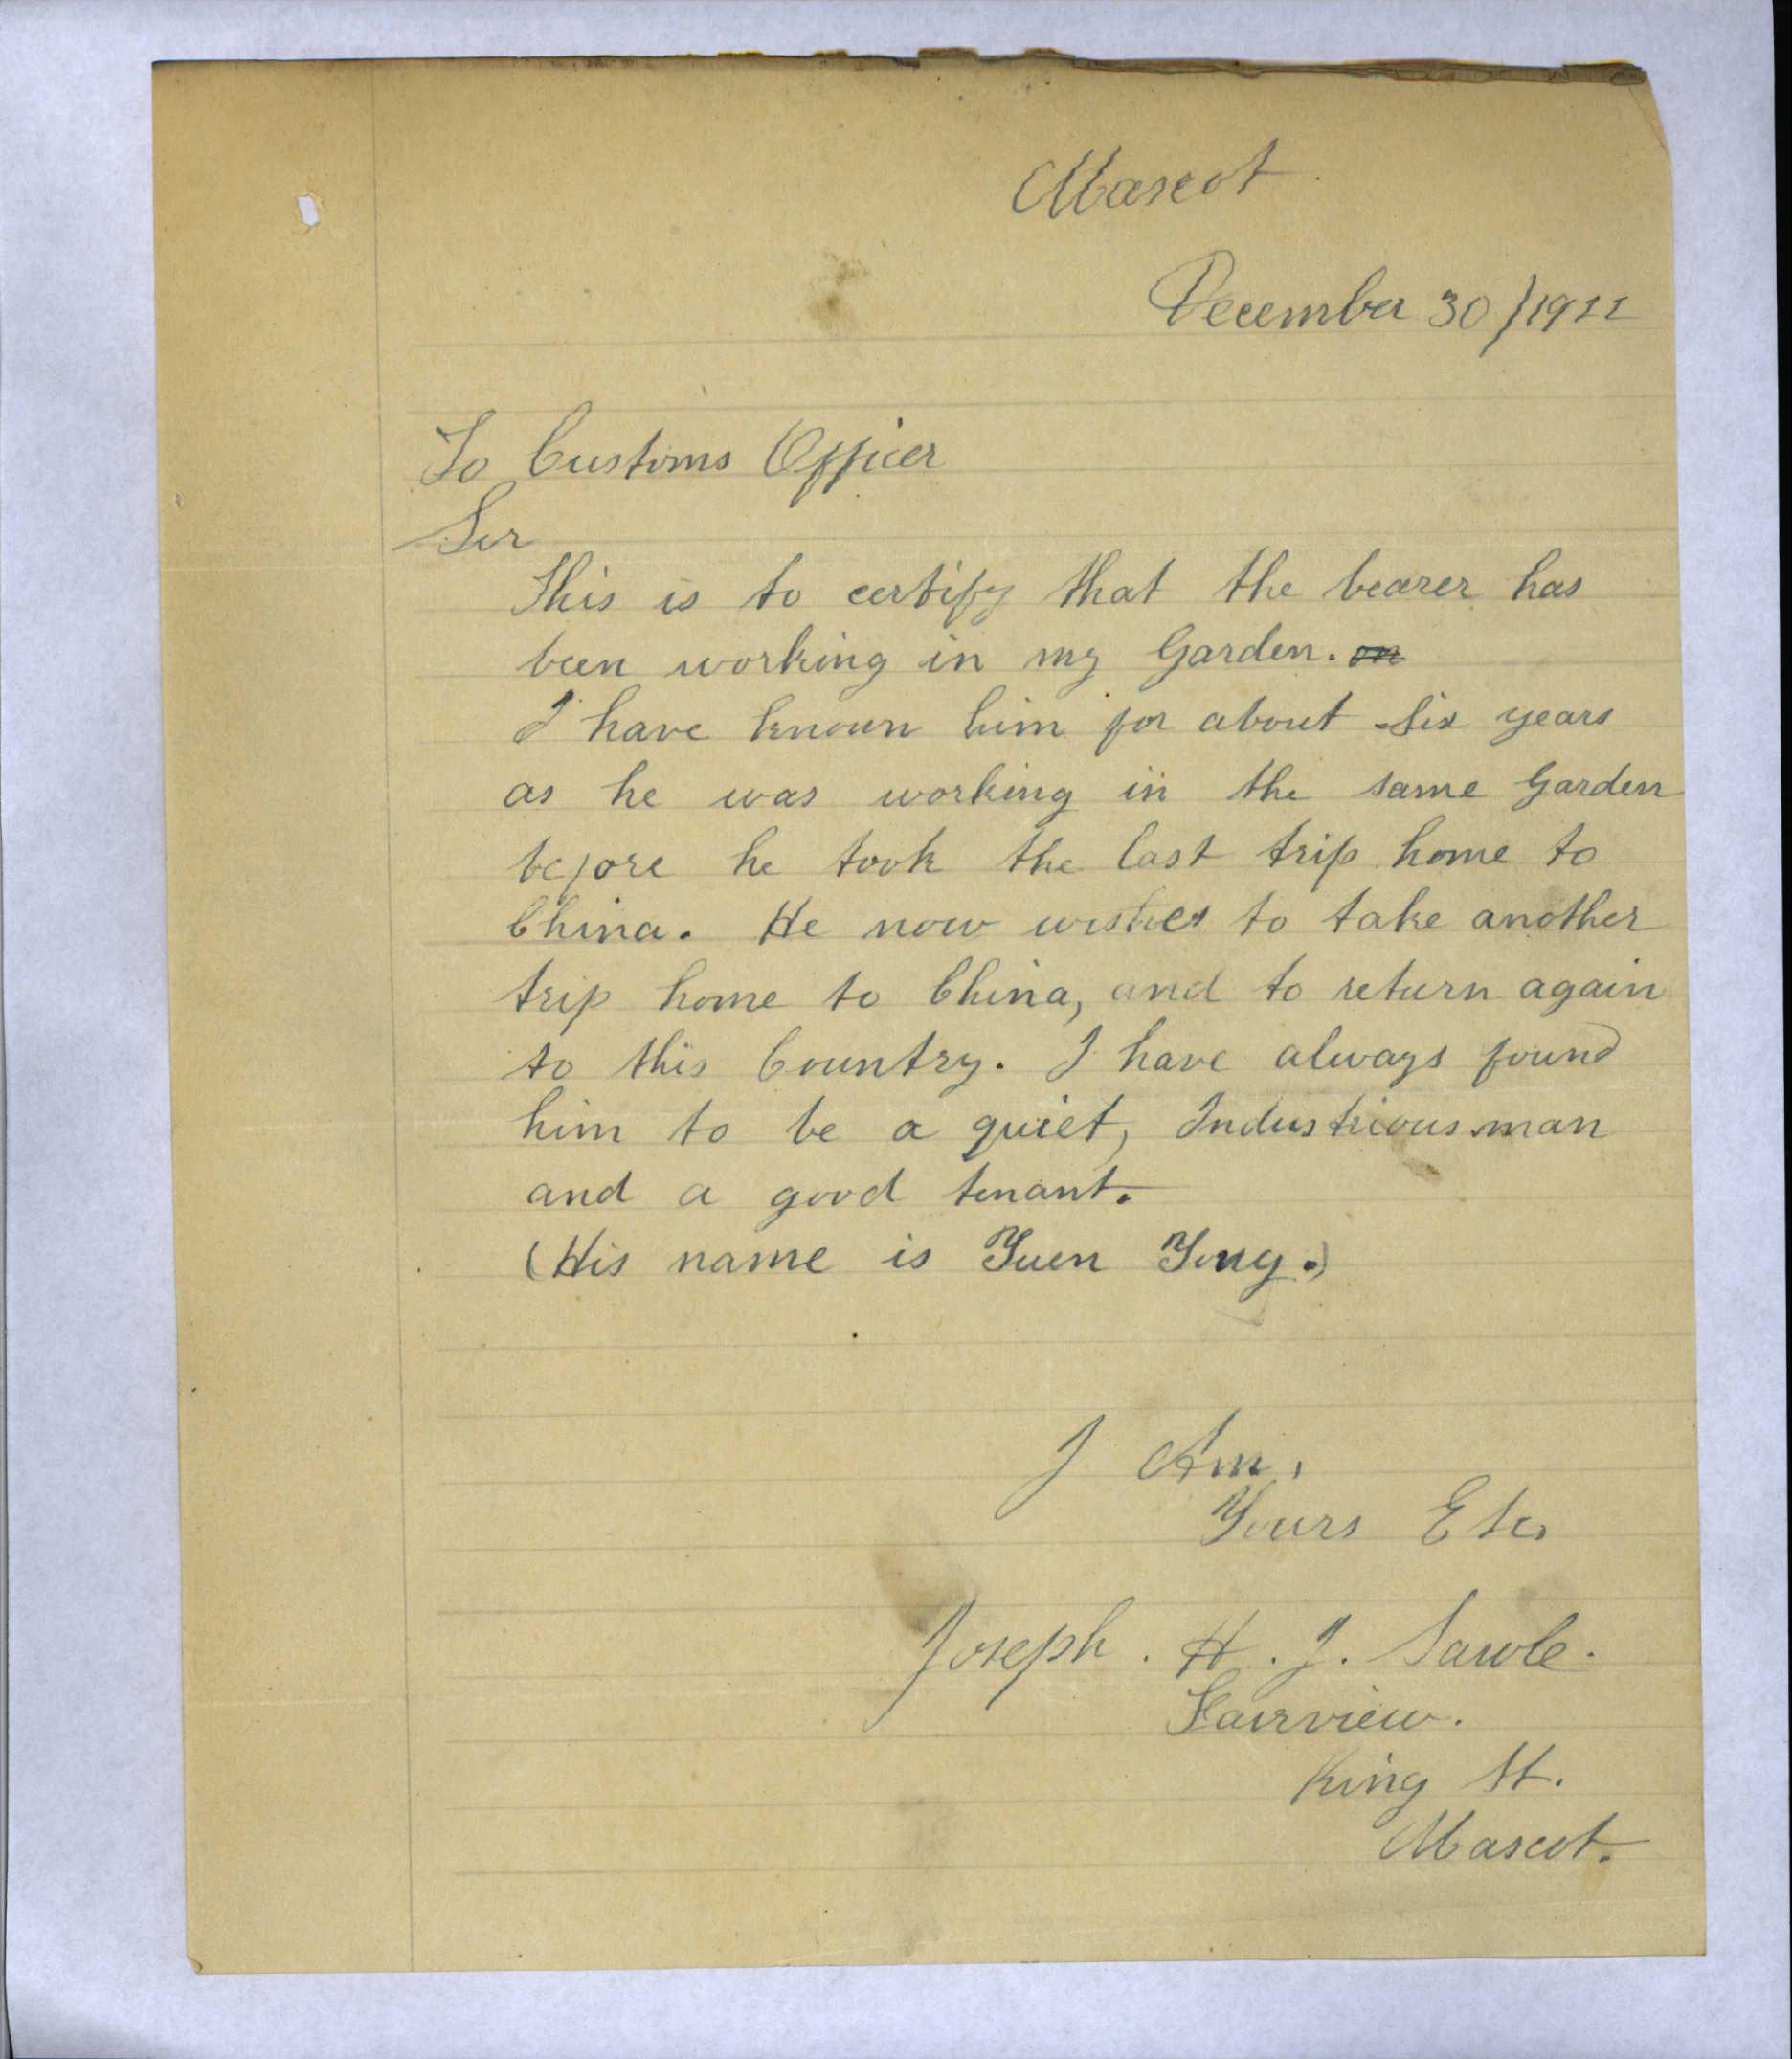 Mascot
December 30/1911
To Customs Officer
Sir
This is to certify that the bearer has
been working in my Garden. on
I have known him for about six years
as he was working in the same Garden
before he took the last trip home to
China. He now wishes to take another
trip home to China, and to return again
to this Country. I have always found
him to be a quiet, Industrious man
and a good tenant.
(His name is Yuen Yong.)
I Am,
Yours Etc.
Joseph. H. J. Sawle.
Fairview.
King St.
Mascot.